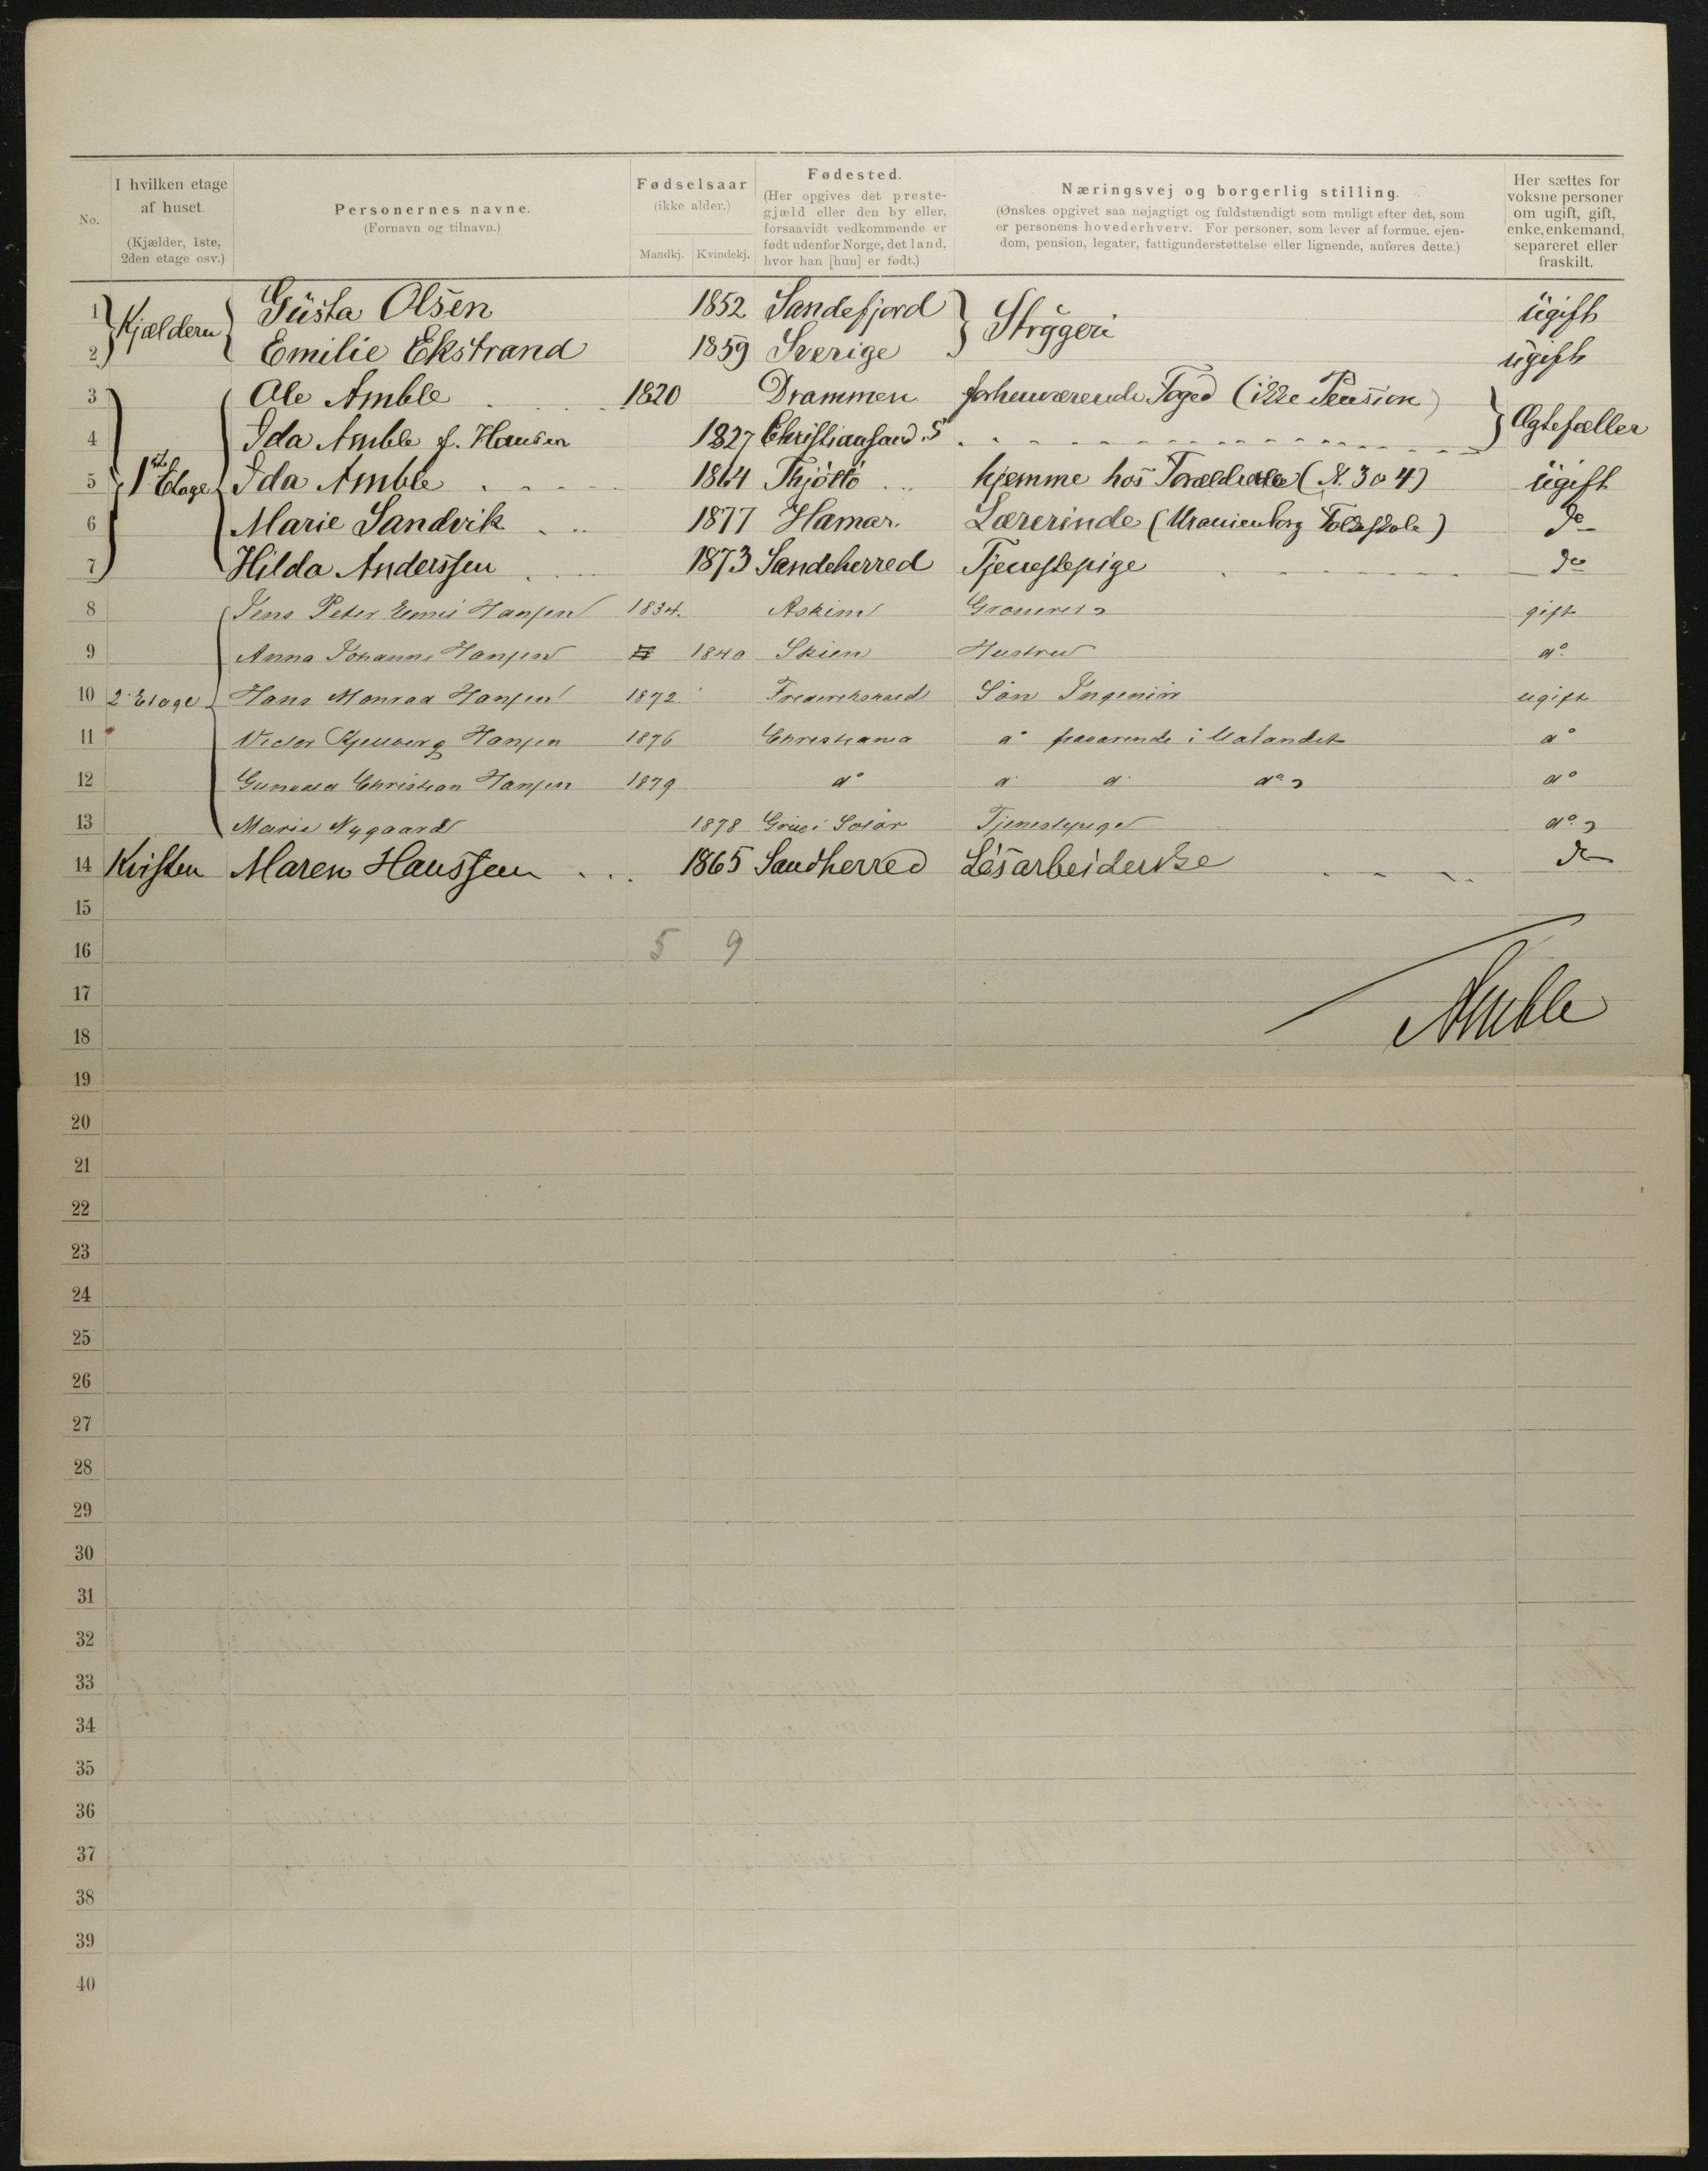 No.
I hvilken etage af huset. (Kjælder, 1ste, 2den etage osv.)
Personernes navne. (Fornavn og tilnavn.)
Fødselsaar (ikke alder.) Mandkj. Kvindekj.
Fødested. (Her opgives det prestegjæld eller den by eller, forsaavidt vedkommende er født udenfor Norge, det land, hvor han [hun] er født.)
Næringsvej og borgerlig stilling. (Ønskes opgivet saa nøjagtigt og fuldstændigt som muligt efter det, som er personens hovederhverv. For personer, som lever af formue, ejendom, pension, legater, fattigunderstøttelse eller lignende, anføres dette.)
Her sættes for voksne personer om ugift, gift, enke, enkemand, separeret eller fraskilt.
1 Kjælderen Gusta Olsen 1852 Sandefjord Strygeri ugift
2 Emilie Ekstrand 1859 Sverige ugift
3 Ole Amble 1820 Drammen forhenværende Foged (ikke Pension) Ægtefæller
4 Ida Amble f. Hansen 1827 Christiansand S
5 1ste Etage Ida Amble 1864 Thjøttø hjemme hos Forældrene (N. 3 o 4) ugift
6 Marie Sandvik 1877 Hamar. Lærerinde (Uranienborg Folkeskole) do
7 Hilda Anderssen 1873 Sandeherred Tjenestepige do
8 Jens Peter Hansen 1834. Askim gift
9 Anna Johanne Hansen 1840 Skien Hustru do
10 2 Etage Hans Monrad Hansen 1872 Frederikshald Søn Ingeniør ugift
11 Victor Hansen 1876 Christiania do fraværende i Udlandet do
12 Christian Hansen 1879 do d d do do
13 Marie Nygaard 1878 Grue i Solør Tjenestepige do
14 Kvisten Maren Hanssen 1865 Sandherred Løsarbeiderske do
15
16 5 9
17
Amble
18
19
20
21
22
23
24
25
26
27
28
29
30
31
32
33
34
35
36
37
38
39
40